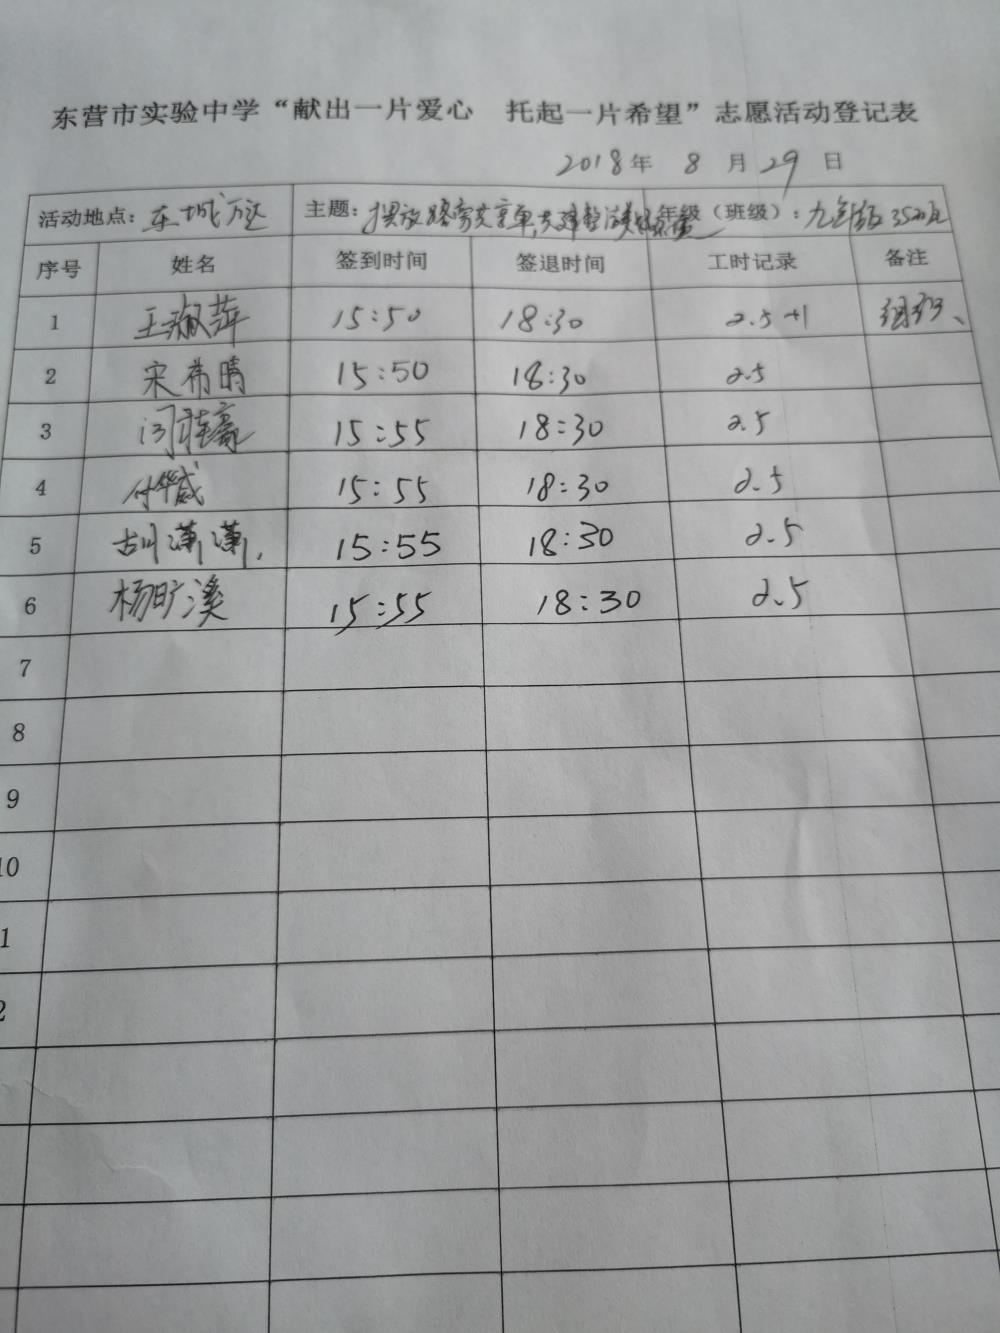 东营市实验中学“献出一片爱心 托起一片希望”志愿活动登记表
2018年 8 月 29 日
活动地点：东城万达 主题：摆放路旁共享单车 年级（班级）：九年级
序号 姓名 签到时间 签退时间 工时记录 备注
1 王淑萍 15:50 18:30 2.5+1 组织、
2 宋希晴 15:50 18:30 2.5
3 15:55 18:30 2.5
4 15:55 18:30 2.5
5 胡潇潇. 15:55 18:30 2.5
6 杨旷溪 15:55 18:30 2.5
7
8
9
10
1
2